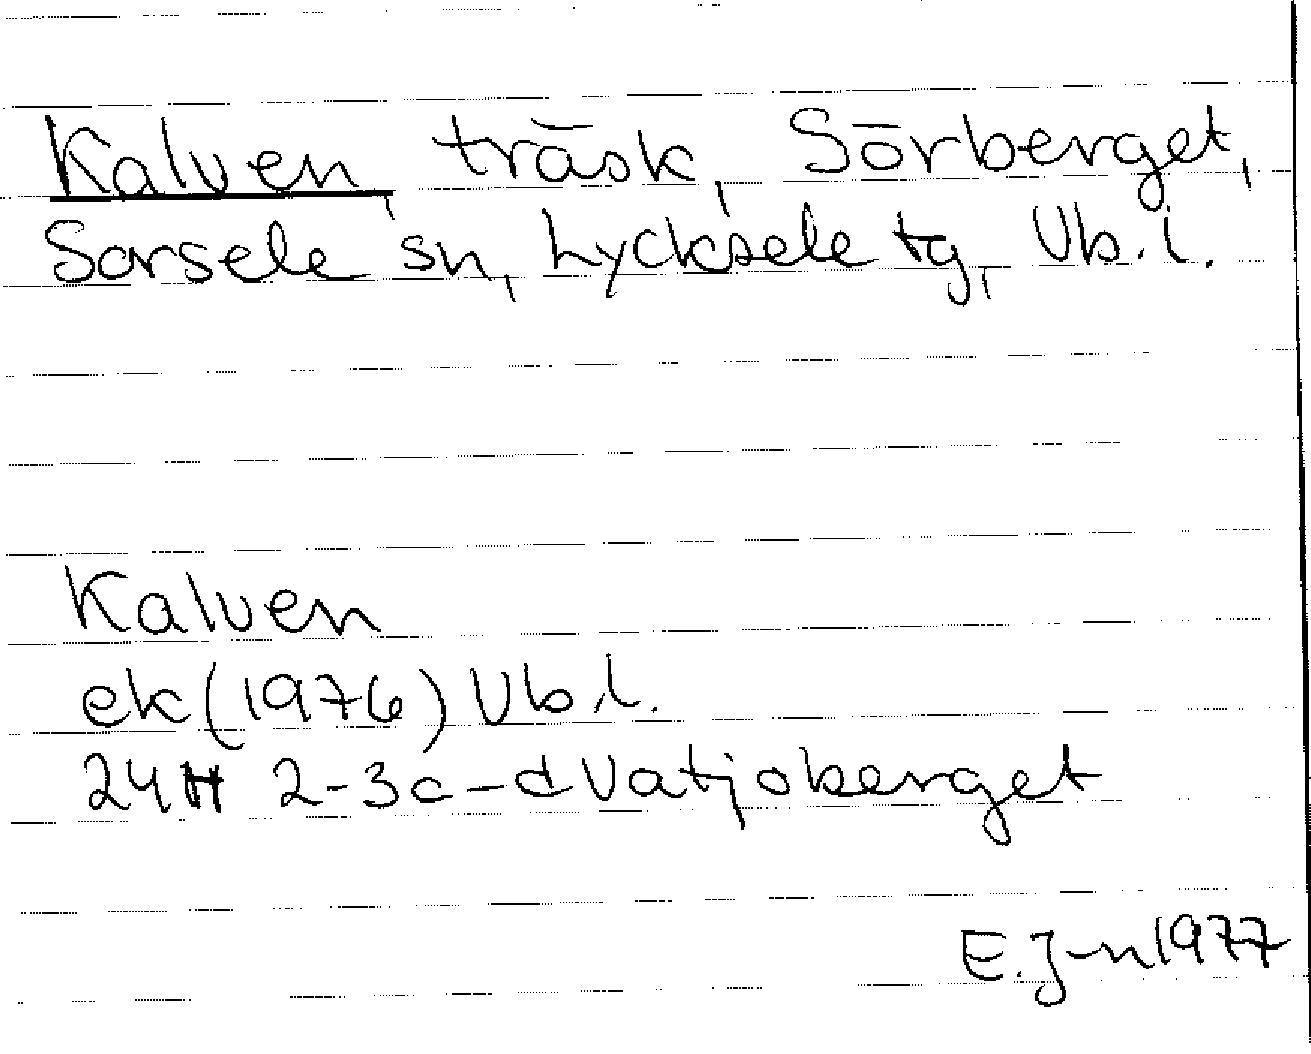 Kalven, träsk, Sörberget,
Sorsele sn, Lycksele tg, Vb.l.
Kalven
ek (1976) Vb.l.
24H 2-3c-d Vatjoberget
E.J-n 1977